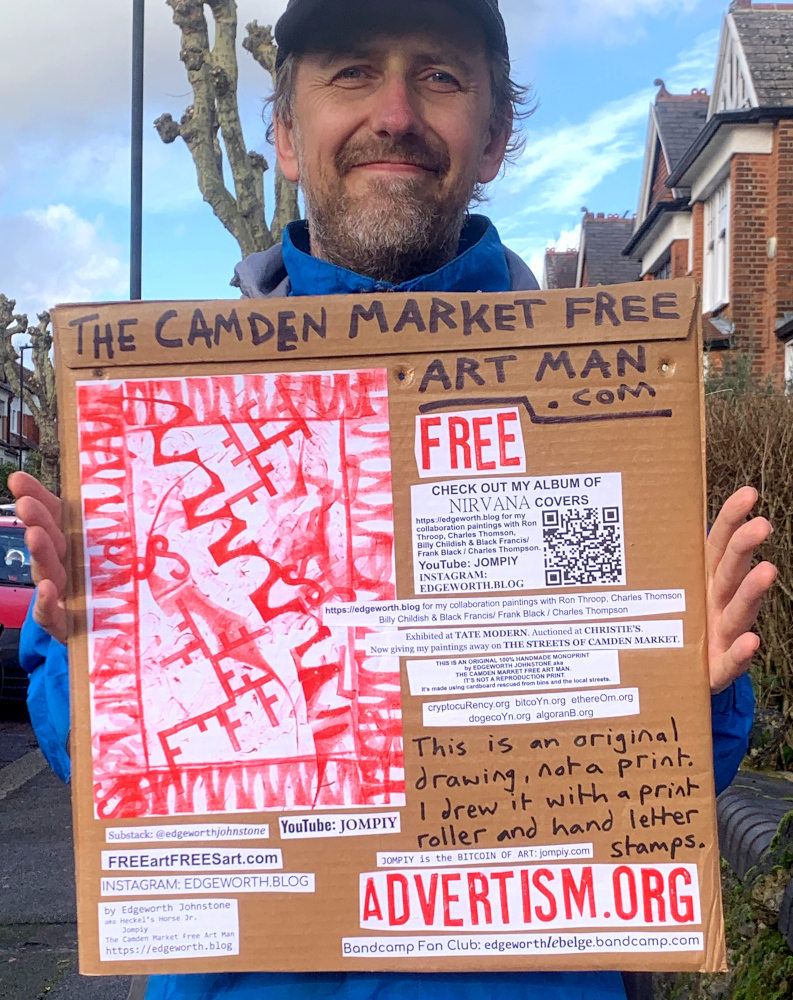 THE CAMDEN MARKET FREE
ART MAN
.COM
FREE
CHECK OUT MY ALBUM OF
NIRVANA COVERS
https://edgeworth.blog for my
collaboration paintings with Ron
Throop, Charles Thomson,
Billy Childish & Black Francis/
Frank Black / Charles Thompson.
YouTube: JOMPIY
INSTAGRAM:
EDGEWORTH.BLOG
https://edgeworth.blog for my collaboration paintings with Ron Throop, Charles Thomson
Billy Childish & Black Francis/ Frank Black / Charles Thompson
Exhibited at TATE MODERN. Auctioned at CHRISTIE'S.
Now giving my paintings away on THE STREETS OF CAMDEN MARKET.
THIS IS AN ORIGINAL 100% HANDMADE MONOPRINT
by EDGEWORTH JOHNSTONE aka
THE CAMDEN MARKET FREE ART MAN.
IT'S NOT A REPRODUCTION PRINT.
It's made using cardboard rescued from bins and the local streets.
cryptocuRency.org bitcoYn.org ethereOm.org
dogecoYn.org algoranB.org
This is an original
drawing, not a print.
I drew it with a print
roller and hand letter
stamps.
Substack: @edgeworthjohnstone
YouTube: JOMPIY
FREEartFREESart.com
INSTAGRAM: EDGEWORTH.BLOG
by Edgeworth Johnstone
aka Heckel's Horse Jr.
Jompiy
The Camden Market Free Art Man
https://edgeworth.blog
JOMPIY is the BITCOIN OF ART: jompiy.com
ADVERTISM.ORG
Bandcamp Fan Club: edgeworthlebelge.bandcamp.com